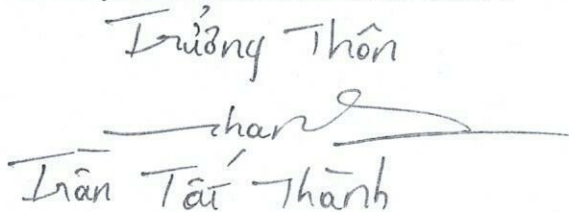 Trưởng Thôn
Thanh
Trần Tất Thành